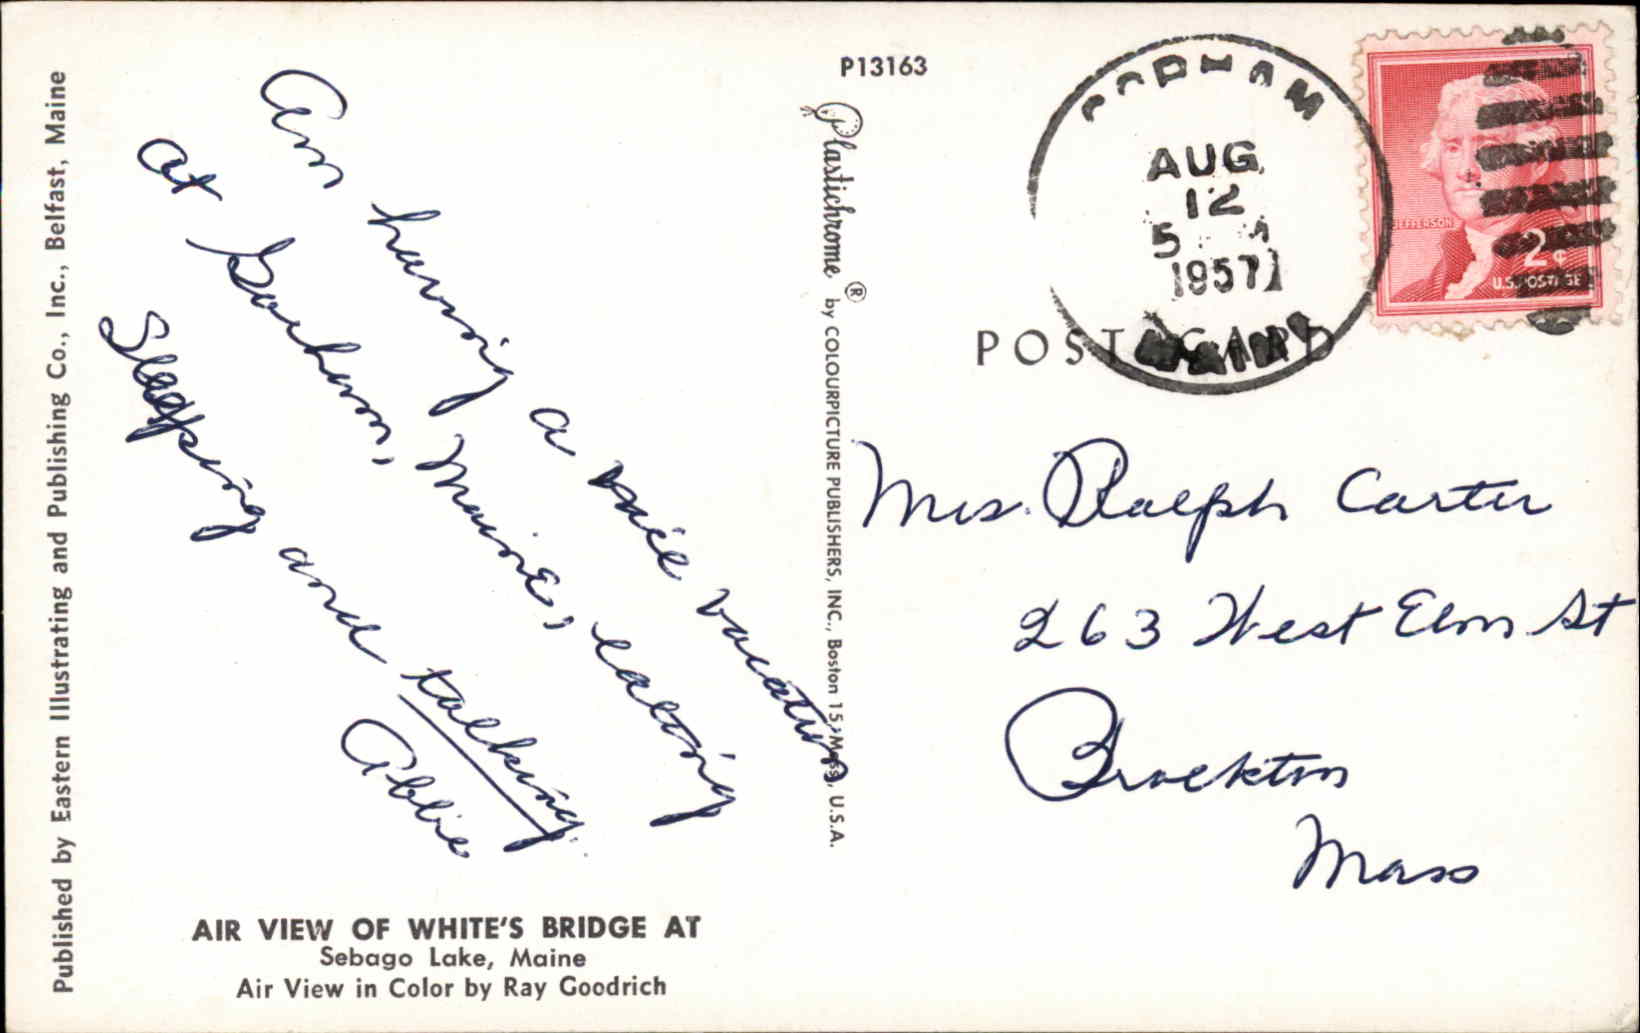 Published by Eastern Illustrating and Publishing Co., Inc., Belfast, Maine
Am having a nice vacation
at Gorham, Maine, eating
Sleeping and talking.
Abbie
AIR VIEW OF WHITE'S BRIDGE AT
Sebago Lake, Maine
Air View in Color by Ray Goodrich
P13163
Plastichrome® by COLOURPICTURE PUBLISHERS, INC., Boston 15, Mass., U.S.A.
POST CARD
GORHAM
AUG
12
5 M
1957
MAINE
JEFFERSON
2¢
U.S. POSTAGE
Mrs. Ralph Carter
263 West Elm St
Brockton
Mass